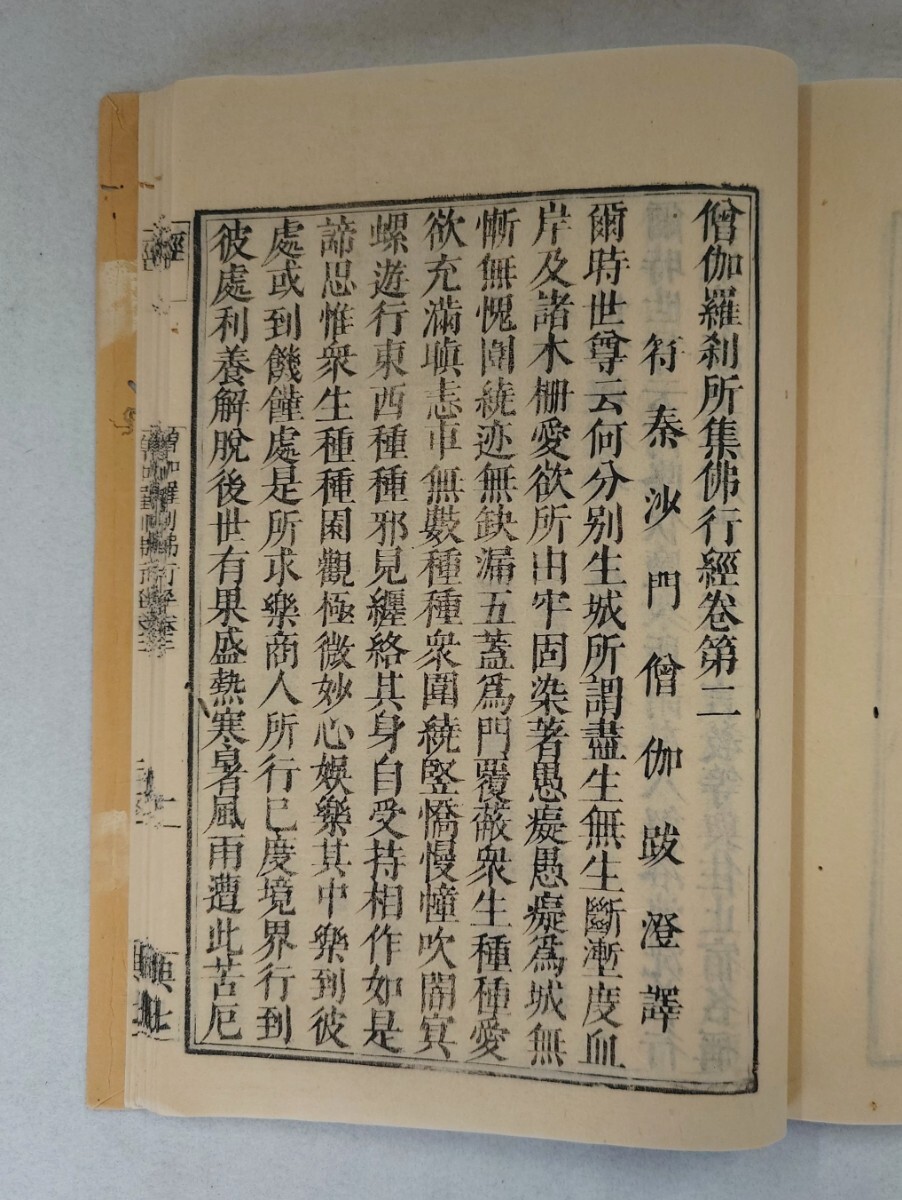 僧伽羅刹所集佛行經卷第二
符秦沙門僧伽跋澄譯
爾時世尊云何分别生城所謂盡生無生斷壍度血
岸及諸木柵愛欲所由牢固染著愚癡愚癡爲城無
慚無愧圍繞迹無缺漏五蓋爲門覆蔽衆生種種愛
欲充滿瞋恚車無數種種衆圍繞竪憍慢幢吹闇寞
螺遊行東西種種邪見纒絡其身自受持相作如是
諦思惟衆生種種園觀極微妙心娛樂其中樂到彼
處或到饑饉處是所求樂商人所行已度境界行到
彼處利養解脫後世有果盛熱寒暑者風雨遭此苦厄